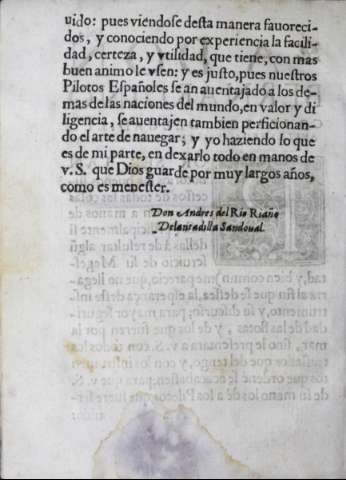 uido: pues viéndose desta manera fauoreci-
dos, y conociendo por experiencia la facili-
dad, certeza, y vtilidad, que tiene, con mas
buen animo le vsen: y es justo, pues nuestros
Pilotos Españoles se an auentajado a los de-
mas de las naciones del mundo, en valor y di
ligencia, se auentajen tambien perficionan-
do el arte de nauegar; y yo haziendo lo que
es de mi parte, en dexarlo todo en manos de
v.S. que Dios guarde por muy largos años,
como es menester.
Don Andres del Rio Riaño
Delantadilla Sandoual.